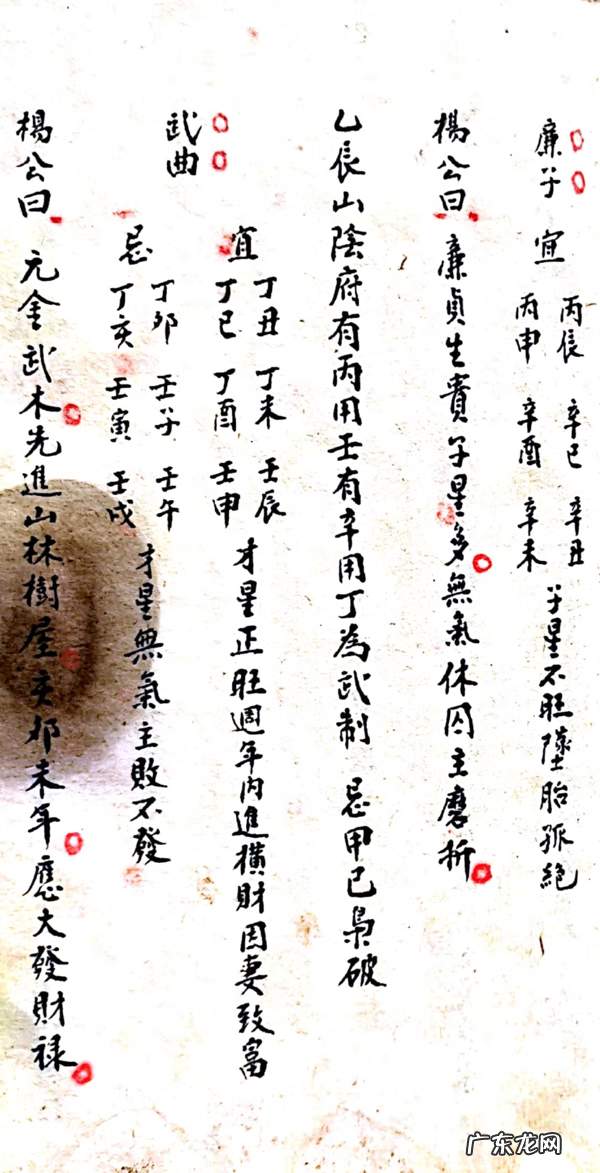 廉子 宜 丙辰 辛巳 辛丑
丙申 辛酉 辛未 子星不旺墜胎孤絕
楊公曰 廉貞生貴子星多無氣休囚主磨折
乙辰山陰府有丙用壬有辛用丁為武制 忌甲己梟破
武曲
宜 丁丑 丁未 壬辰
丁巳 丁酉 壬申 才星正旺週年內進橫財因妻致富
忌 丁卯 壬子 壬午
丁亥 壬寅 壬戌 才星無氣主敗不發
楊公曰 元金武木先進山林樹屋亥卯未年應大發財祿
广东龙网